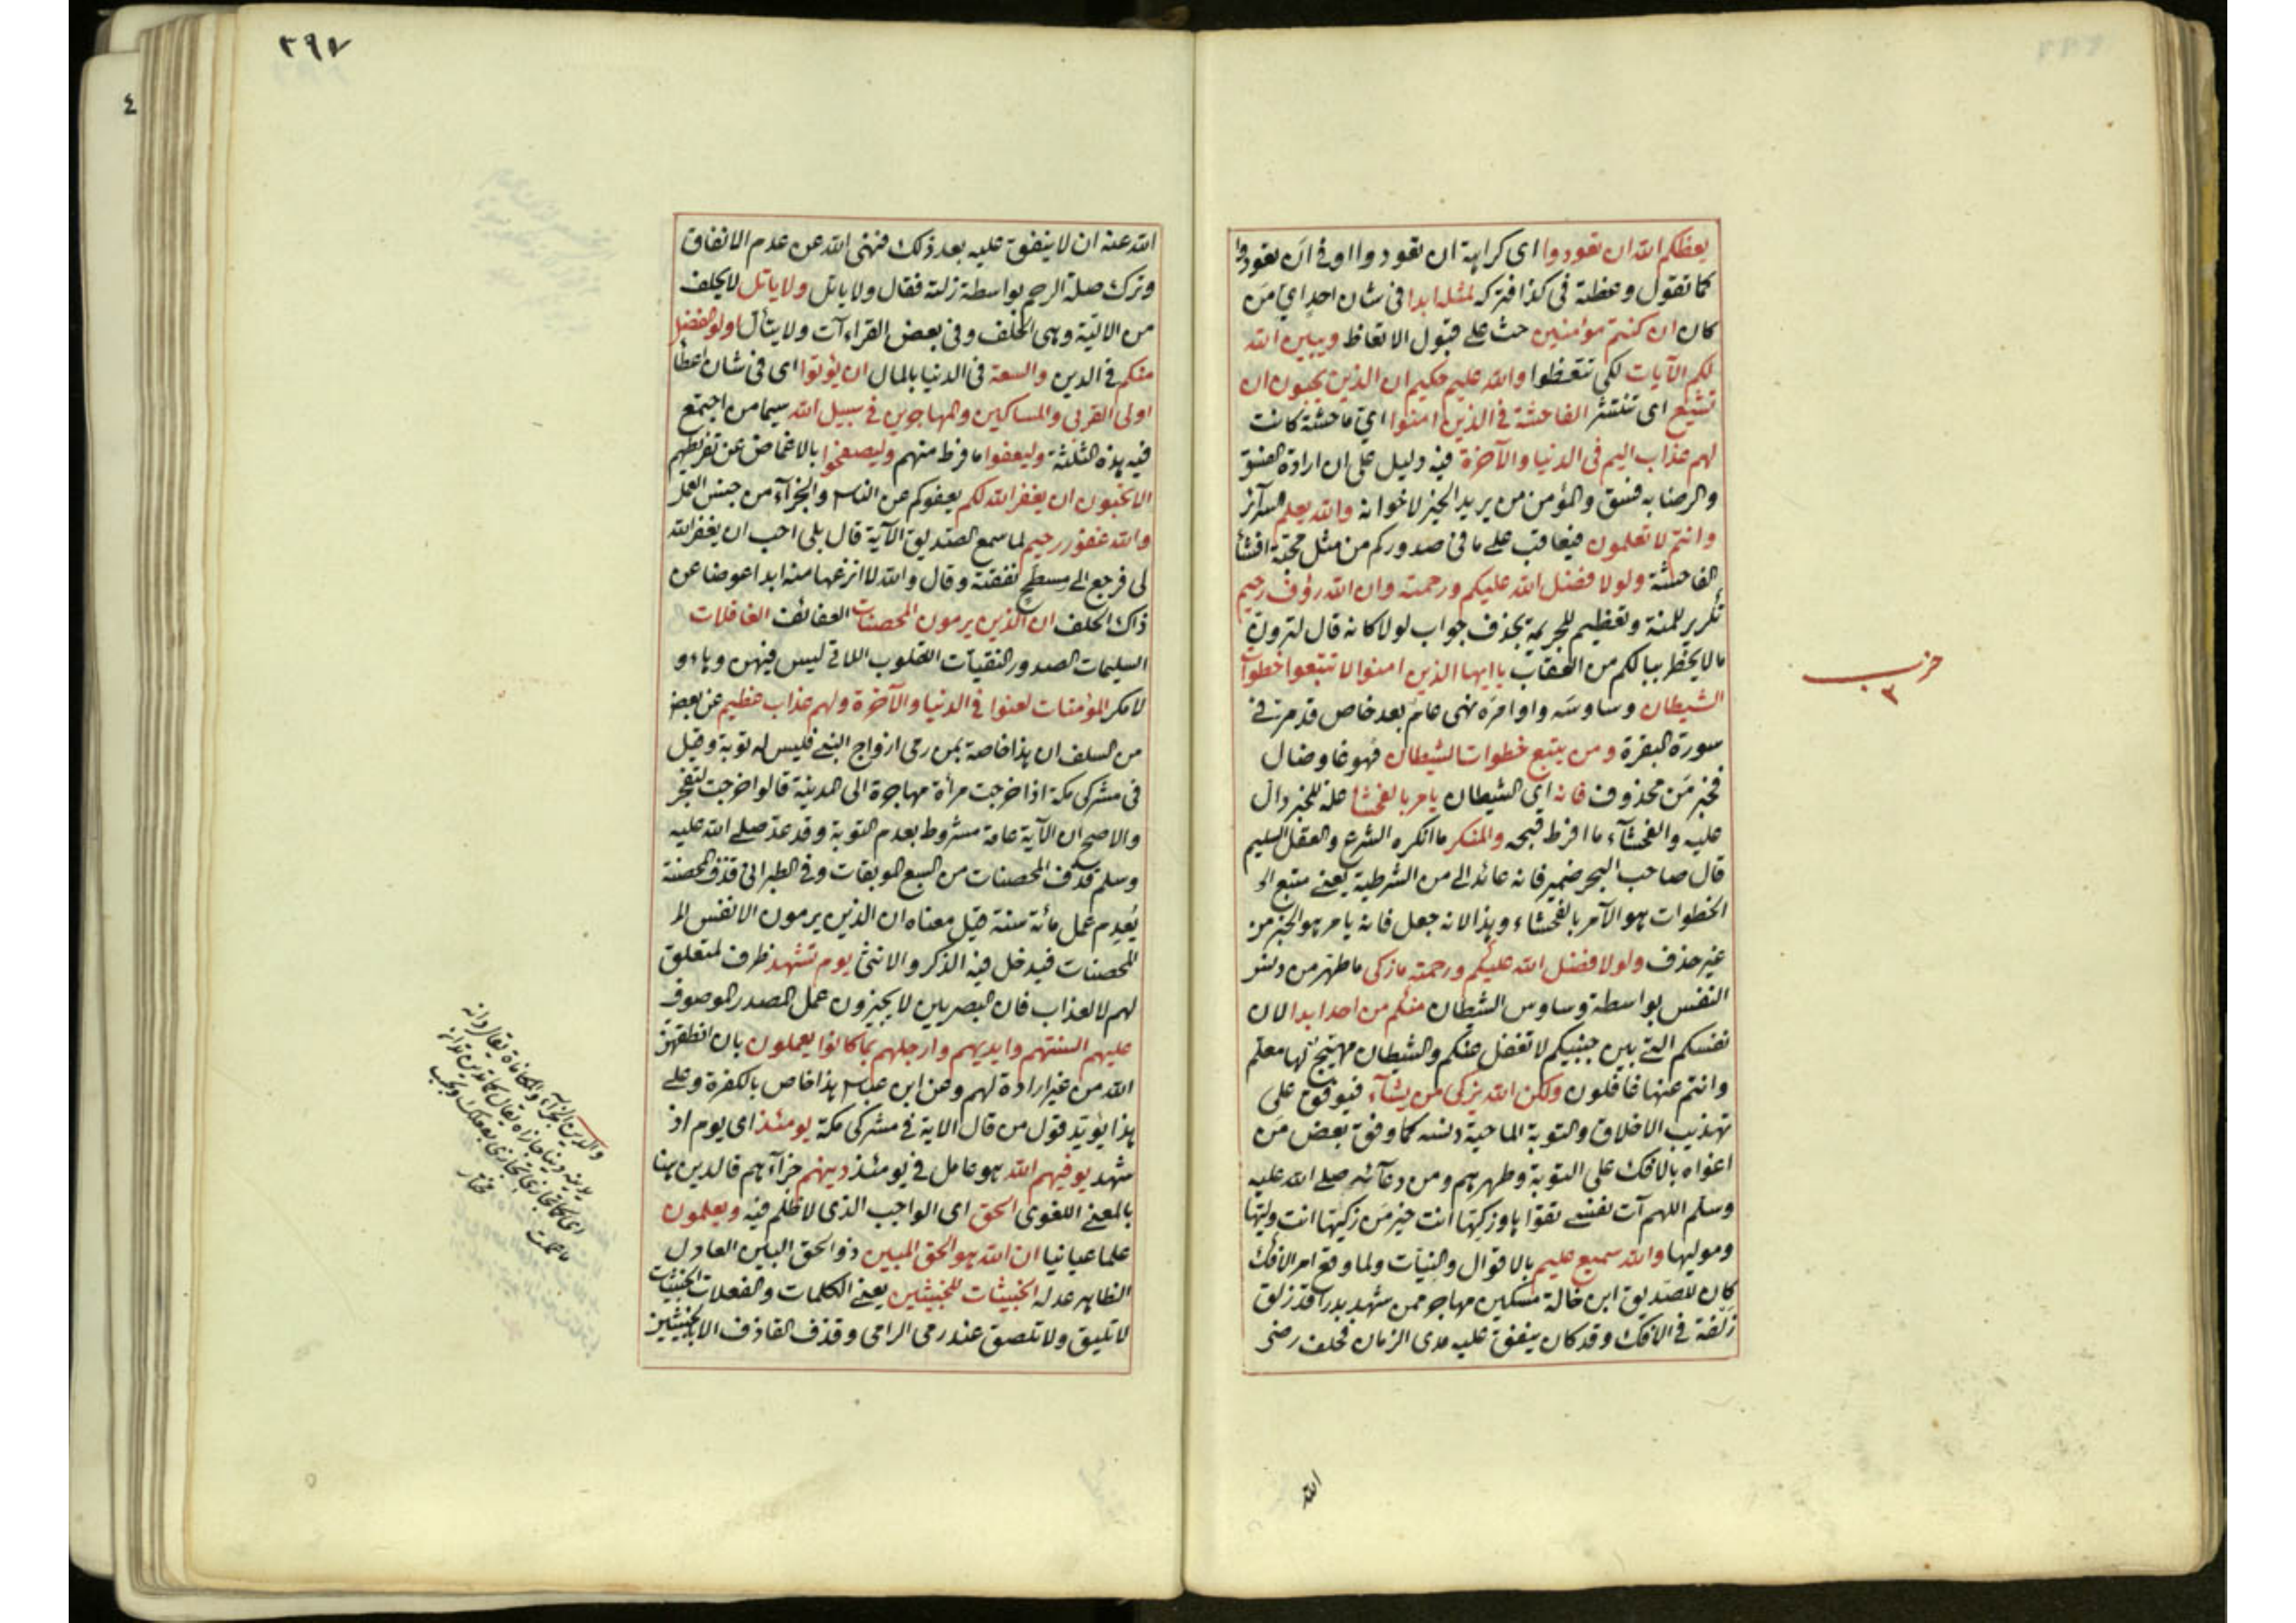 يعظكم الله ان تعودوا اى كراهة ان تعودوا او فى ان تعودوا
كما تقول وعظته فى كذا فتركه لمثله ابدا فى شان احد اى من
كان ان كنتم مؤمنين حث على قبول الاتعاظ ويبين الله
لكم الآيات لكى تتعظوا والله عليم حكيم ان الذين يحبون ان
تشيع اى تنتشر الفاحشة فى الذين امنوا اى فاحشة كانت
لهم عذاب اليم فى الدنيا والآخرة فيه دليل على ان ارادة الفسق
والرضا به فسق والمؤمن من يريد الخير لاخوانه والله يعلم السرآئر
وانتم لا تعلمون فيعاقب على ما فى صدوركم من مثل محبة افشا
الفاحشة ولولا فضل الله عليكم ورحمته وان الله رؤف رحيم
تكرير للمنة وتعظيم للجريمة بحذف جواب لولا كانه قال لترون
ما لا يخطر ببالكم من العقاب ياايها الذين امنوا لا تتبعوا خطوات
الشيطان وساوسه واوامره نهى عام بعد خاص قد مر فى
سورة البقرة ومن يتبع خطوات الشيطان فهو غاو ضال
فخبر من محذوف فانه اى الشيطان يامر بالفحشا علة للخبر دال
عليه والفحشآء ما افرط قبحه والمنكر ما انكره الشرع والعقل السليم
قال صاحب البحر ضمير فانه عائد الى من الشرطية يعنى متبع
الخطوات هو الآمر بالفحشاء وهذا لانه جعل فانه يامر هو الخبر من
غير حذف ولولا فضل الله عليكم ورحمته ما زكى ما طهر من دنس
النفس بواسطة وساوس الشيطان منكم من احد ابدا لان
نفسكم التى بين جنبيكم لا تغفل عنكم والشيطان مهيج لها معلم
وانتم عنها غافلون ولكن الله يزكى من يشآء فيوفق على
تهذيب الاخلاق والتوبة الماحية دنسه كما وفق بعض من
اغواه بالافك على التوبة وطهرهم ومن دعآئه صلى الله عليه
وسلم اللهم آت نفسى تقواها وزكها انت خير من زكيها انت وليها
وموليها والله سميع عليم بالاقوال والنيآت ولما وقع امر الافك
كان للصديق ابن خالة مسكين مهاجر ممن شهد بدرا قد زلق
زلقة فى الافك وقد كان ينفق عليه مدى الزمان فحلف رضى
الله
حزب
٣
٣٩٧
٤
الله عنه ان لا ينفق عليه بعد ذلك فنهى الله عن عدم الانفاق
وترك صلة الرحم بواسطة زلته فقال ولا ياتل ولا ياتل لا يحلف
من الالية وهى الحلف وفى بعض القراءآت ولا يتأل اولوا الفضل
منكم فى الدين والسعة فى الدنيا بالمال ان يؤتوا اى فى شان اعطا
اولى القربى والمساكين والمهاجرين فى سبيل الله سيما من اجتمع
فيه هذه الثلثة وليعفوا ما فرط منهم وليصفحوا بالاغماض عن تفريطهم
الا تحبون ان يغفر الله لكم بعفوكم عن الناس والجزآء من جنس العمل
والله غفور رحيم لما سمع الصديق الآية قال بلى احب ان يغفر الله
لى فرجع الى مسطح نفقته وقال والله لا انزعها منه ابدا عوضا عن
ذاك الحلف ان الذين يرمون المحصنات العفائف الغافلات
السليمات الصدور النقيات القلوب اللاتى ليس فيهن
لا مكر المؤمنات لعنوا فى الدنيا والآخرة ولهم عذاب عظيم عن بعض
من السلف ان هذا خاصة بمن رمى ازواج النبى فليس له توبة وقيل
فى مشركى مكة اذا خرجت مرأة مهاجرة الى المدينة قالوا خرجت لتفجر
والاصح ان الآية عامة مشروط بعدم التوبة وقد عد صلى الله عليه
وسلم قذف المحصنات من السبع الموبقات وفى الطبرانى قذف المحصنة
يهدم عمل مائة سنة قيل معناه ان الذين يرمون الانفس
المحصنات فيدخل فيه الذكر والانثى يوم تشهد ظرف لمتعلق
لهم لا لعذاب فان البصريين لا يجيزون عمل المصدر الموصوف
عليهم السنتهم وايديهم وارجلهم بما كانوا يعملون بان انطقهن
الله من غير ارادة لهم وعن ابن عباس هذا خاص بالكفرة وعلى
هذا يؤيد قول من قال الاية فى مشركى مكة يومئذ اى يوم اذ
شهد يوفيهم الله هو عامل فى يومئذ دينهم جزآءهم فالدين هنا
بالمعنى اللغوى الحق اى الواجب الذى لا ظلم فيه ويعلمون
علما عيانيا ان الله هو الحق المبين ذو الحق البين العادل
الظاهر عدله الخبيثات للخبيثين يعنى الكلمات والفعلات الخبيثات
لا تليق ولا تلصق عند رمى الرامى وقذف القاذف الا بالخبيثين
والمكافاة يقال دانه
يدينه دينا جازاه يقال كما تدين تدان
اى كما تجازى تجازى بفعلك وبحسب
ما عملت مختار